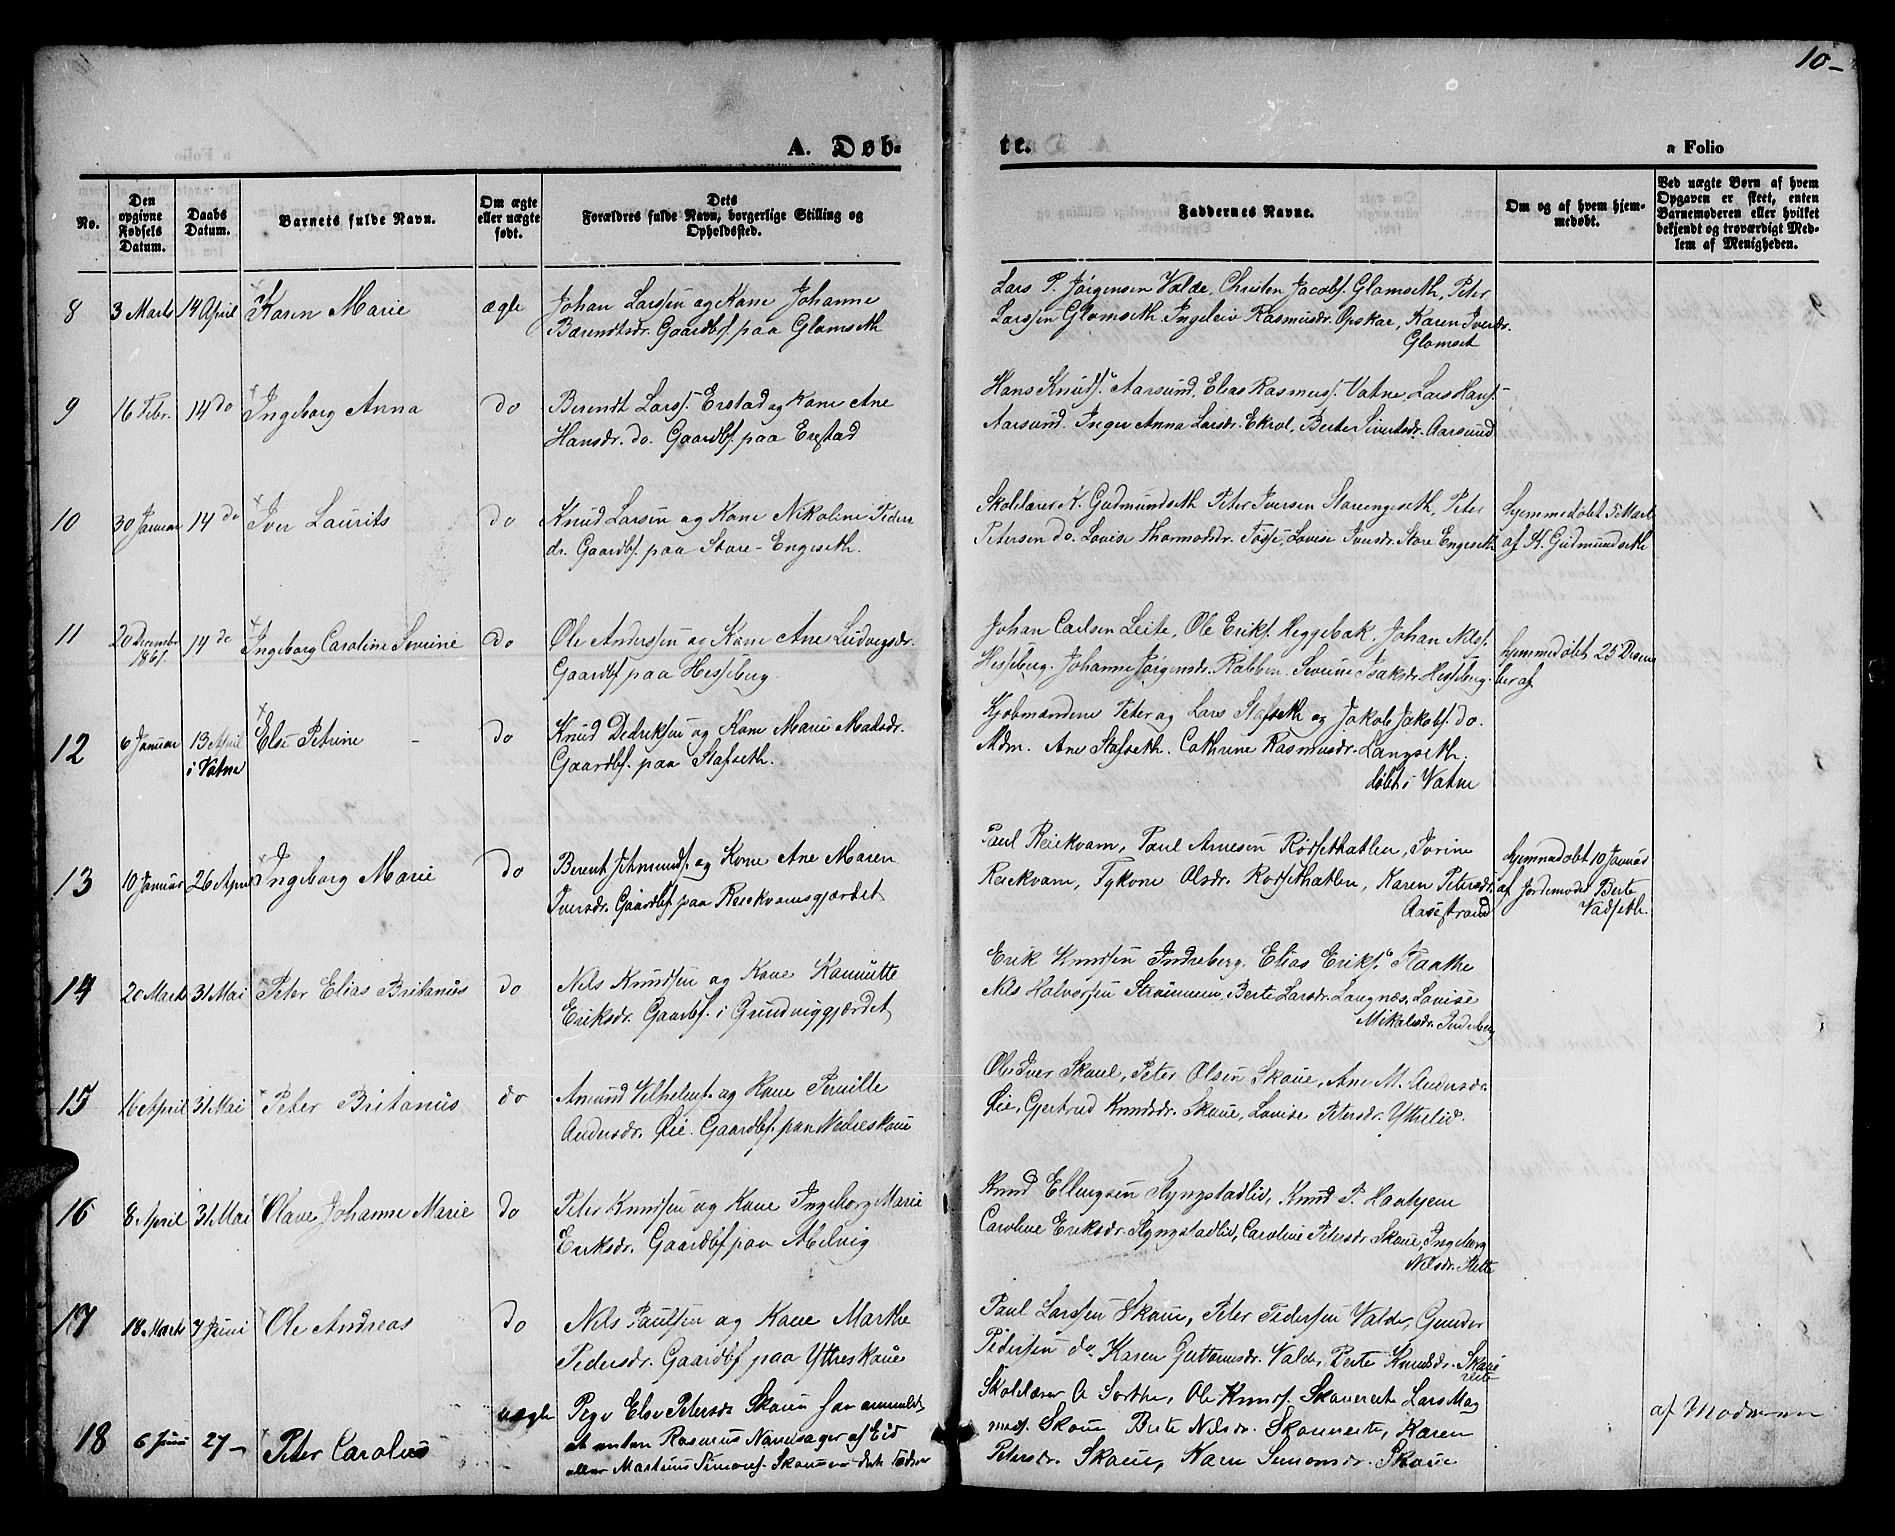 10-
A. Døb-
te.
a Folio
No.
Den opgivne Fødsels Datum.
Daabs Datum.
Barnets fulde Navn.
Om ægte eller uægte født.
Dets Forældres fulde Navn, borgerlige Stilling og Opholdssted.
Faddernes Navne.
Om og af hvem hjemmedøbt.
Ved uægte Børn af hvem Opgaven er skeet, enten Barnemoderen eller hvilket bekjendt og troværdigt Medlem af Menigheden.
8 3 Marts 14 April Karen Marie ægte Johan Larssen og Kone Johanne
Barendtsdr. Gaardbf. paa Glomseth
Lars P. Jørgensen Valde, Christen Jacobs. Glomseth, Peter
Larssen Glomseth, Ingeleiv Rasmusdr. Opskar, Karen Iversdr.
Glomset
9 16 Febr. 14 do Ingeborg Anna do Berendt Larss. Erstad og Kone Ane
Hansdr. do. Gaardbf. paa Erstad
Hans Knuds. Aarsund, Elias Rasmuss. Vatne, Lars Hans-
Aarsund. Inger Anna Larsdr. Ekrol, Berte Sivertsdr. Aarsund
10 30 Januar 14 do Iver Laurits do Knud Larsen og Kone Nikoline Peders
dr. Gaardbf. paa Store-Engeseth.
Skolelærer K. Gudmundseth Peter Iversen Storeengeseth, Peter
Petersen do. Lovise Thormodsdr. Tøsse, Lovise Iversdr. Store Engeseth
Hjemmedøbt 5 Marts
af K. Gudmundseth
11 20 December 1861. 14 do Ingeborg Caroline Severine do Ole Anderssen og Kone Ane Ludvigsdr.
Gaardbf paa Hesseberg.
Johan Carlsen Leite, Ole Eriks. Heggebak, Johan Nils.
Hesseberg. Johanne Jørgensdr. Rabben. Severine Isaksdr. Hesseberg.
hjemmedøbt 25 Decem
ber af
12 6 Januar 13 April i Vatne Else Petrine - do Knud Dedriksen og Kone Marie Madsdr.
Gaardbf. paa Stafseth.
Kjøbmændene Peter og Lars Stafseth og Jakob Jakobs. do.
Mdm. Ane Stafseth. Cathrine Rasmusdr. Langseth.
døbt i Vatne
13 10 Januar 26 April Ingeborg Marie do Berent Amunds. og Kone Ane Maren
Iversdr. Gaardbf paa Reiekvamsgjærdet
Paul Reiekvam, Paul Arnesen Rødsethatlen, Jorine
Reiekvam, Tykone Olsdr. Rødsethatlen, Karen Petersdr.
Aasestrand
hjemmedøbt 10 Januar
af Jordemoder Berte
Vadseth.
14 20 Marts 31 Mai Peter Elias Britanus do Nels Knudsen og Kone
Eriksdr. Gaardbf. i Grundviggjærdet
Erik Knudsen Indreberg. Elias Eriks. Flaathe
Nils Halvorsen Strømmen, Berte Larsdr. Langnæs, Lovise
Mikalsdr. Inderberg
15 16 April 31 Mai Peter Britanus do Amund Vilhelms. og Kone Pernille
Andersdr. Øie. Gaardbf. paa Nedreskoue
Ole Iver Skoue, Peter Olsen Skoue, Ane M. Andersdr.
Øie, Gjertrud Knudsdr. Skoue, Lovise Petersdr. Ytterlid.
16 8 April 31 Mai Olave Johanne Marie do Peter Knudsen og Kone Ingeborg Marie
Eriksdr. Gaardbf paa Abelvig
Knud Ellingsen Slyngstadlid, Knud P. Haahjem
Caroline Eriksdr. Slyngstadlid, Caroline Petersdr Skoue, Ingeborg
Nilsdr. Slette
17 18 Marts 7 Juni Ole Andreas do Nels Paulsen og Kone Marthe
Pedersdr. Gaardbf paa Ytreskoue
Paul Larssen Skoue, Peter Pedersen Valde, Gunder
Pedersen do. Karen Guttormsdr. Valde, Berte Knudsdr. Skoue
reite
18 6 Juni 27 - Peter Carolus uægte Pige Else Petersdr Skoue har anmeldt
at enten Rasmus Nauksager af Eid
eller Martinus Simons. Skoue er dets Fader
Skolelærer O Sorthe, Ole Knuds. Skouereit Lars Mag
nuss. Skoue Berte Nilsdr. Skouereite, Karen
Petersdr. Skoue, Karn Simonsdr. Skoue
af Moderen